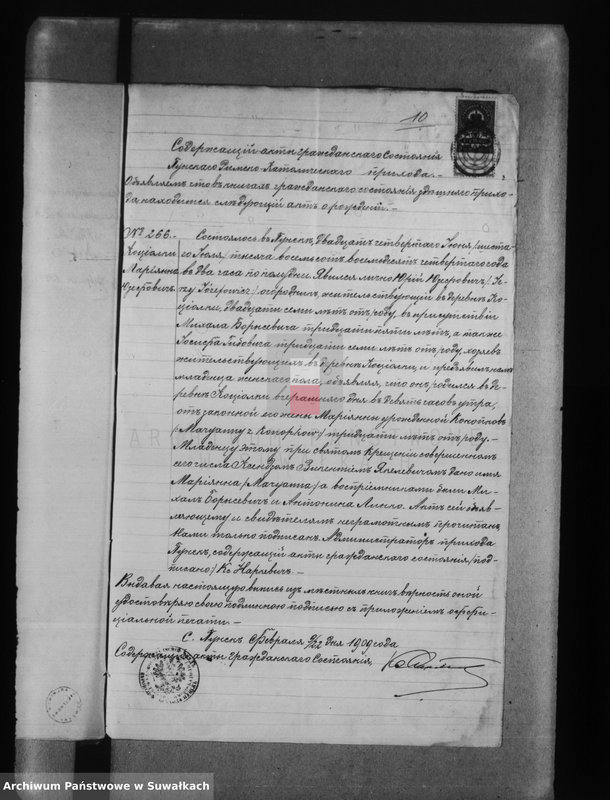 10
Содержащій акты гражданскаго состоянія
Пунскаго Римско-Католическаго прихода.
Объявляетъ что въ книгахъ гражданскаго состоянія здѣшняго прихо-
да находится слѣдующій актъ о рожденіи. —
№ 266. — Состоялось въ Пунскѣ, двадцать четвертаго Іюня / шеста-
го Іюля / тысяча восемьсотъ восемьдесятъ четвертаго года
Маріянна въ два часа по полудни. Явился лично Юрій
огородникъ, жительствующій въ деревнѣ Ко-
ціолки, двадцати семи лѣтъ отъ роду, въ присутствіи
Михала Борисевича тридцати пяти лѣтъ, а также
Іосифа тридцати семи лѣтъ отъ роду, хозяевъ
жительствующихъ въ деревнѣ Коціолки, и предъявилъ намъ
младенца женскаго пола, объявляя, что онъ родился въ де-
ревнѣ Коціолки вчерашняго дня въ девять часовъ утра,
отъ законной его жены Маріянны урожденной Конопковъ
/ Maryanny z / тридцати лѣтъ отъ роду. —
Младенцу этому при святомъ крещеніи совершенномъ
сего числа Ксендзомъ Викентіемъ дано имя
Маріянна / Maryanna / а воспріемниками были Ми-
халъ Борисевичъ и Антонина Актъ сей объяв-
ляющему и свидѣтелямъ неграмотнымъ прочитанъ,
Нами только подписанъ. Администраторъ прихода
Пунскъ, содержащій акты гражданскаго состоянія / под-
писано / Кс.
Выдавая настоящую выпись изъ мѣстныхъ книгъ вѣрность оной
удостовѣряю своею подлинною подписью съ приложеніемъ оффи-
ціальной печати. —
С. Пунскъ Февраля 9/22 дня 1909 года
Содержащій акты Гражданскаго Состоянія,
Archiwum Państwowe w Suwałkach